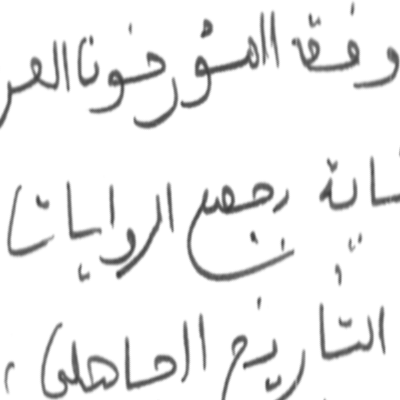 وفق المؤرخون العر
ناية بجمع الروايات
التأريخ الجاهلي ،